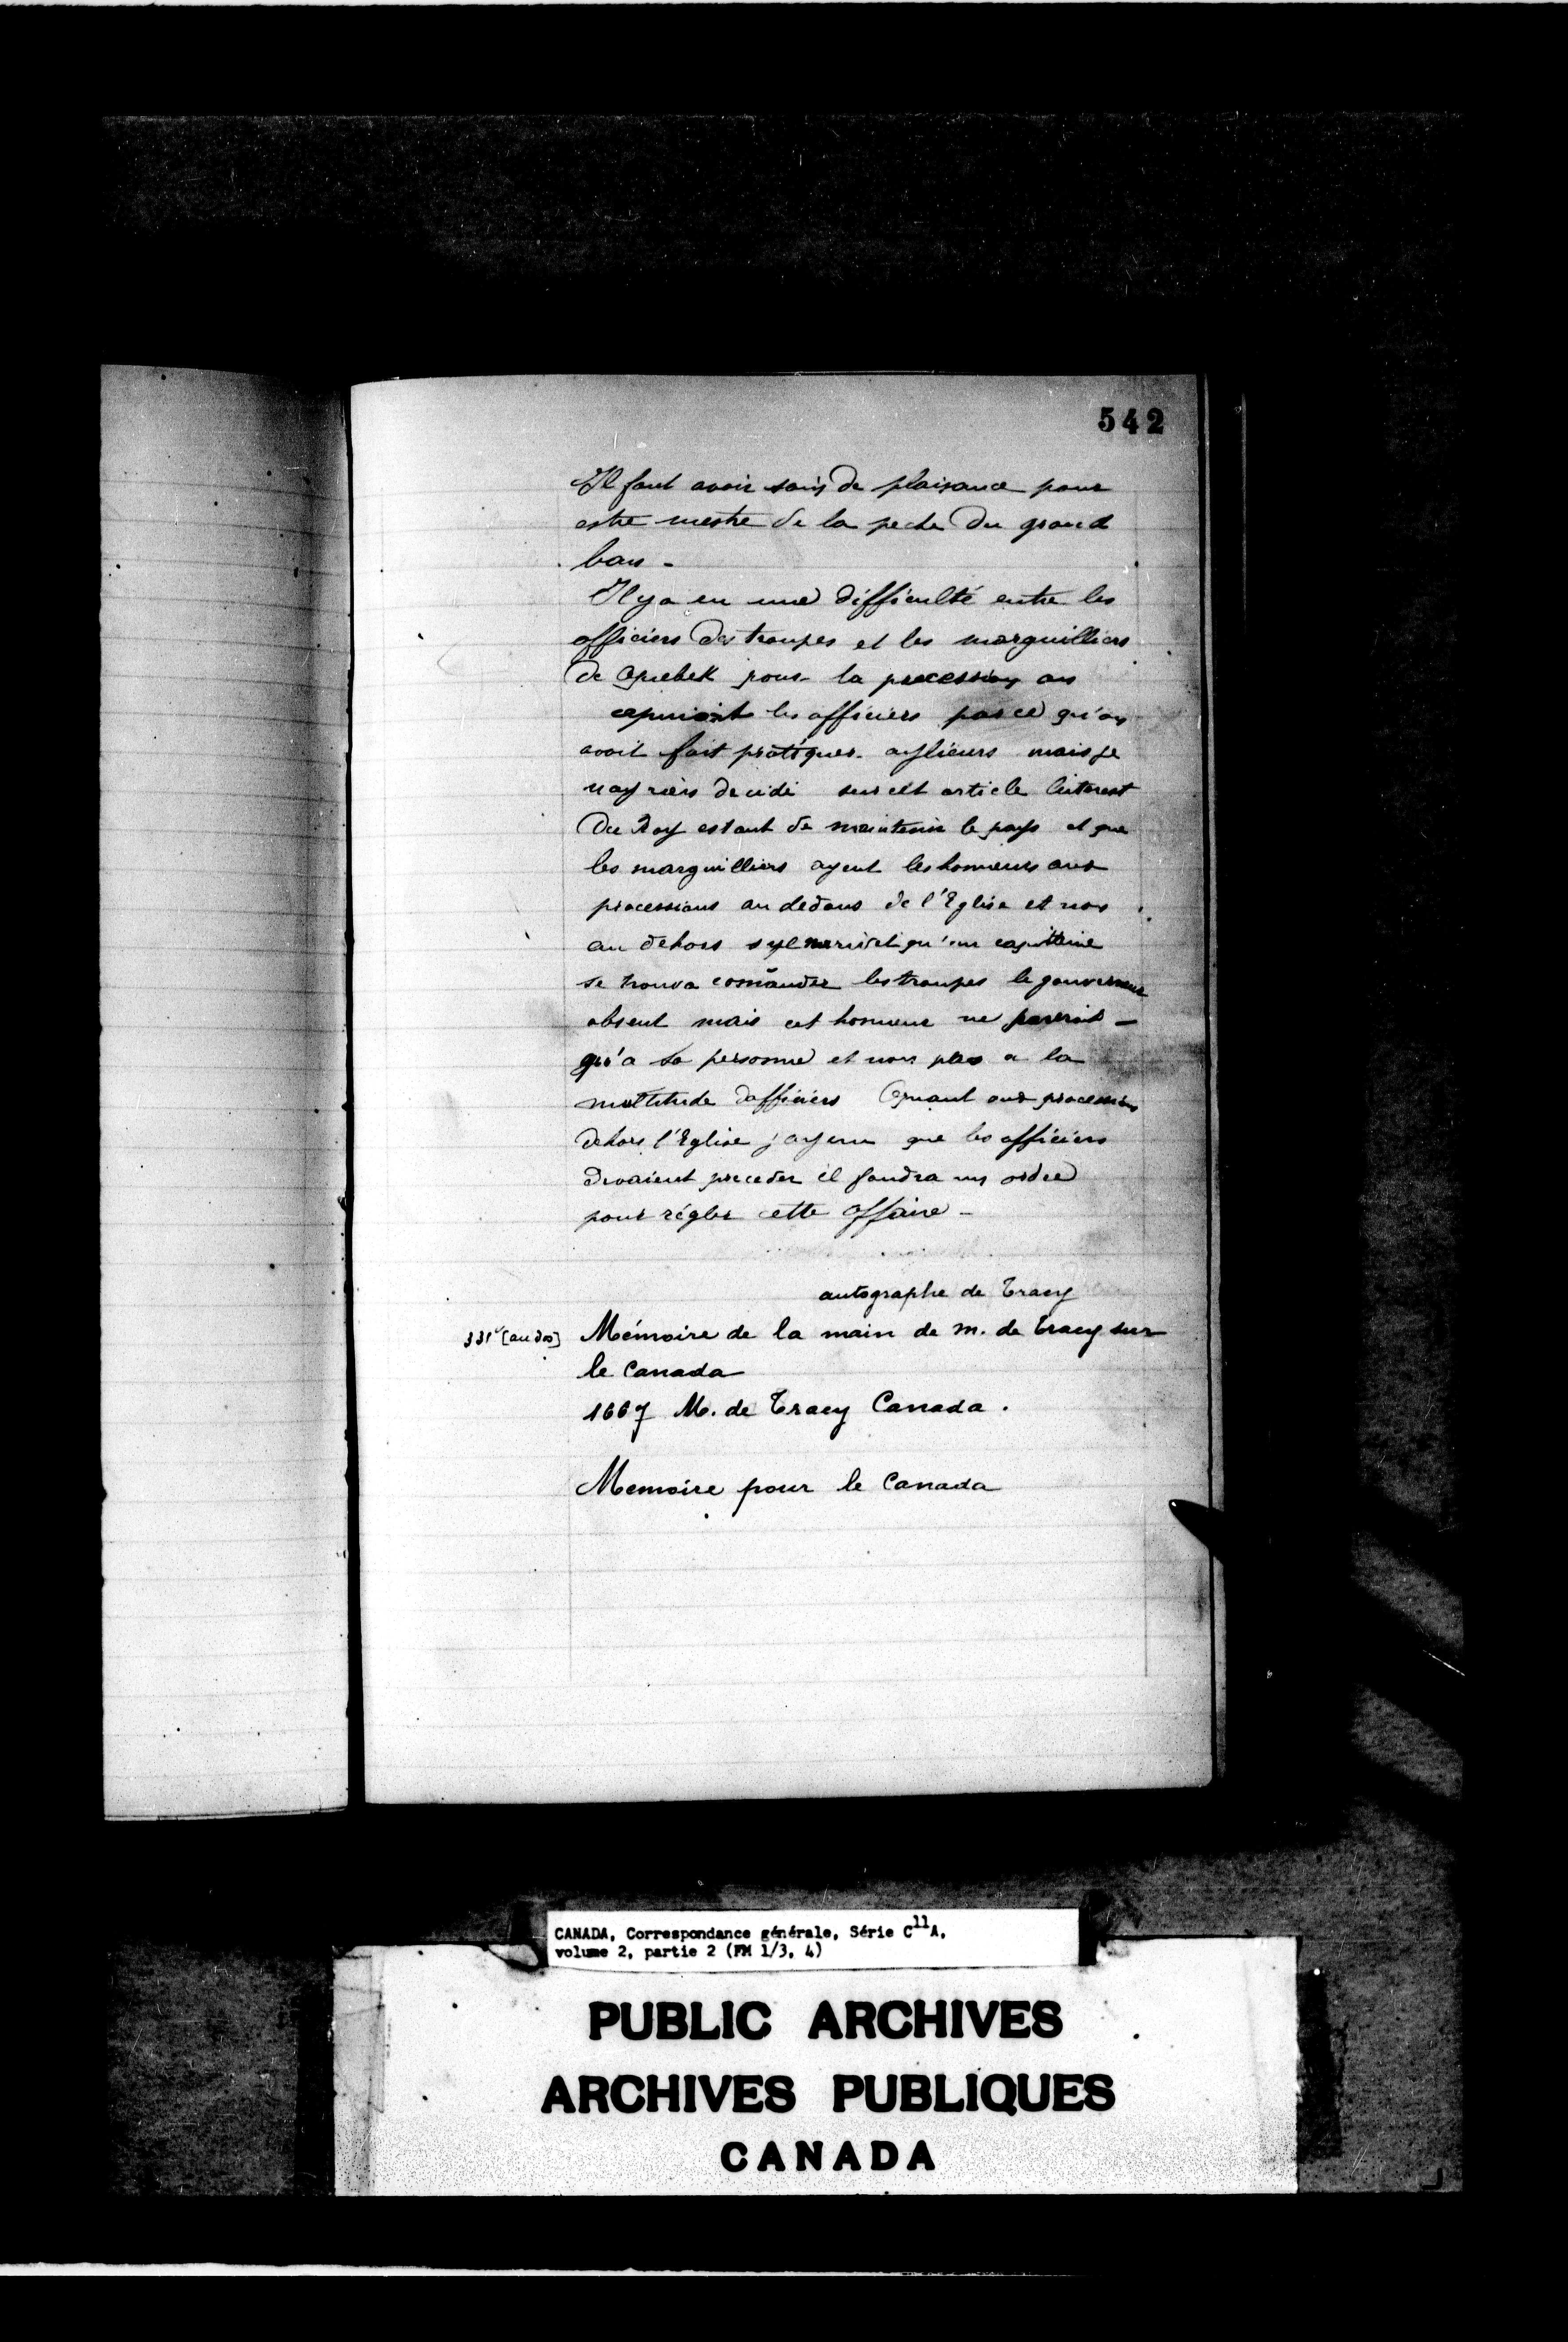 542
Il faut avoir soin de plaisance pour
estre mestre de la peche du grand
ban -
Il y a eu une difficulté entre les
officiers des troupes et les marguilliers
de Quebek pour la procession ou
les officiers parce qu'on
avoit fait pratiquer ayllieurs mais je
nay rien decidé sur cet article linterest
du Roy estant de maintenir le pays et que
les marguilliers ayent les honneurs aux
processions au dedans de l'Eglise et non
au dehors syl qu'un capittaine
se trouva comãnder les troupes le gouverneur
absent mais cet honneur ne
qu'a sa personne et non pas a la
multitude dofficiers Quant aux processions
dehors l'Eglise j'ay creu que les officiers
devoient preceder il faudra un ordre
pour régler cette affaire -
autographe de Tracy
331v [au dos] Mémoire de la main de m. de Tracy sur
le Canada
1667 M. de Tracy Canada.
Memoire pour le Canada
CANADA, Correspondance générale, Série C11A,
volume 2, partie 2 (FM 1/3, 4)
PUBLIC ARCHIVES
ARCHIVES PUBLIQUES
CANADA